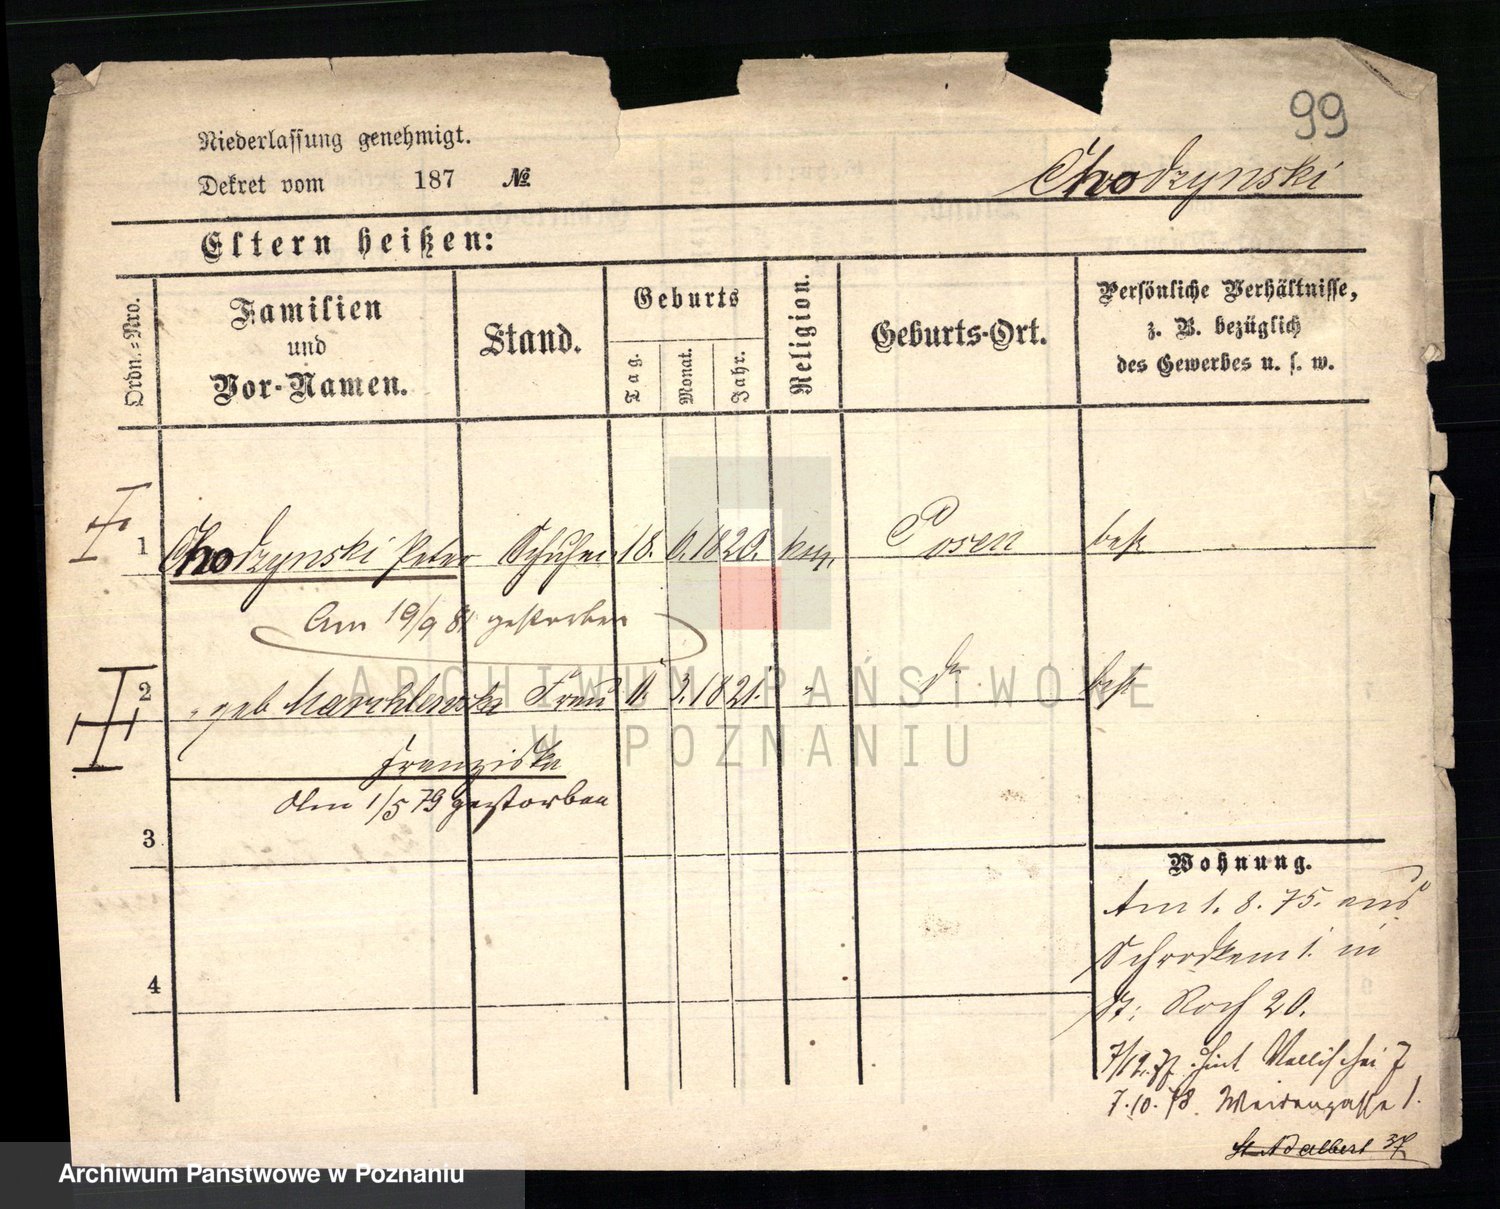 99
Niederlassung genehmigt.
Dekret vom 187 №
Chodzynski
Eltern heißen:
Ordn.-Nro.
Familien
und
Vor-Namen.
Stand.
Geburts
Tag.
Monat.
Jahr.
Religion.
Geburts-Ort.
Persönliche Verhältnisse,
z. B. bezüglich
des Gewerbes u. s. w.
1 Chodzynski Peter 18. 6. 1820. Posen
Am 19/9 81 gestorben
2 geb Frau 11. 3. 1821. "
Franziska
Am 1/5 79 gestorben
3
4
Wohnung.
Am 1. 8. 75. aus
in
St: Roch 20.
7/12. 77. Wallischei 7
7.10.78. Weidengasse 1.
St Adalbert 37
ARCHIWUM PAŃSTWOWE
W POZNANIU
Archiwum Państwowe w Poznaniu